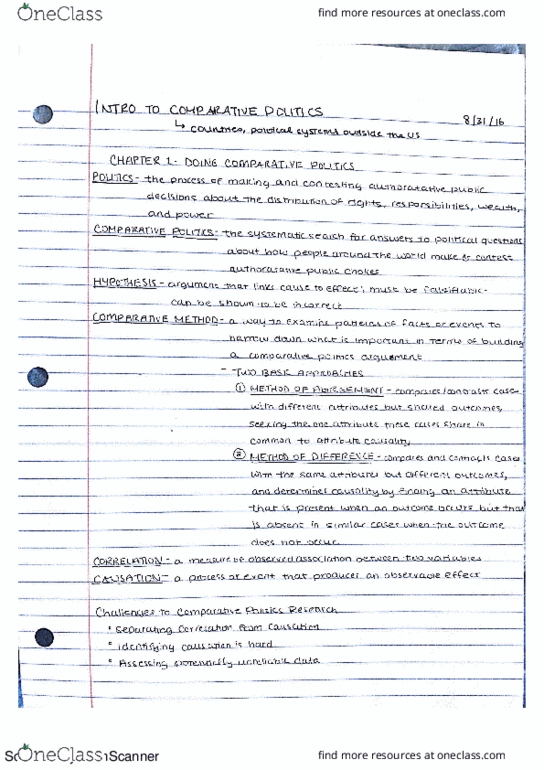 OneClass
find more resources at oneclass.com
INTRO TO COMPARATIVE POLITICS
8/31/16
↳ countries, political systems outside the US
CHAPTER 1: DOING COMPARATIVE POLITICS
POLITICS- the process of making and contesting authoratative public
decisions about the distribution of rights, responsibilities, wealth,
and power
COMPARATIVE POLITICS- the systematic search for answers to political questions
about how people around the world make & contest
authoratative public choices
HYPOTHESIS - argument that links cause to effect; must be falsifiable-
can be shown to be incorrect
COMPARATIVE METHOD- a way to examine patterns of facts or events to
narrow down what is important in terms of building
a comparative politics arguement
- TWO BASIC APPROACHES
① METHOD OF AGREEMENT - compares/contrasts cases
with different attributes but shared outcomes,
seeking the one attribute these cases share in
common to attribute causality
② METHOD OF DIFFERENCE - compares and contrasts cases
with the same attributes but different outcomes,
and determines causality by finding an attribute
that is present when an outcome occurs but that
is absent in similar cases when the outcome
does not occur
CORRELATION- a measure of observed association between two variables
CAUSATION- a process or event that produces an observable effect
Challenges to Comparative Politics Research
• Separating correlation from causation
• Identifying causation is hard
• Assessing potentially unreliable data
OneClass
Scanner
find more resources at oneclass.com